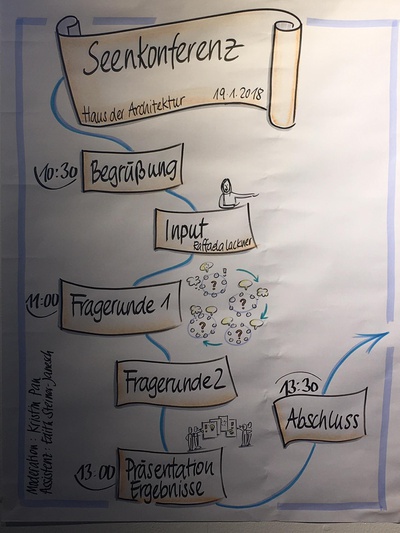 Seenkonferenz
Haus der Architektur 19.1.2018
10:30 Begrüßung
Input
Raffaela Lackner
11:00 Fragerunde 1
Fragerunde 2
13:30
Abschluss
13:00 Präsentation
Ergebnisse
Moderation: Kristin Pan
Assistenz: Edith Steiner-Janesch